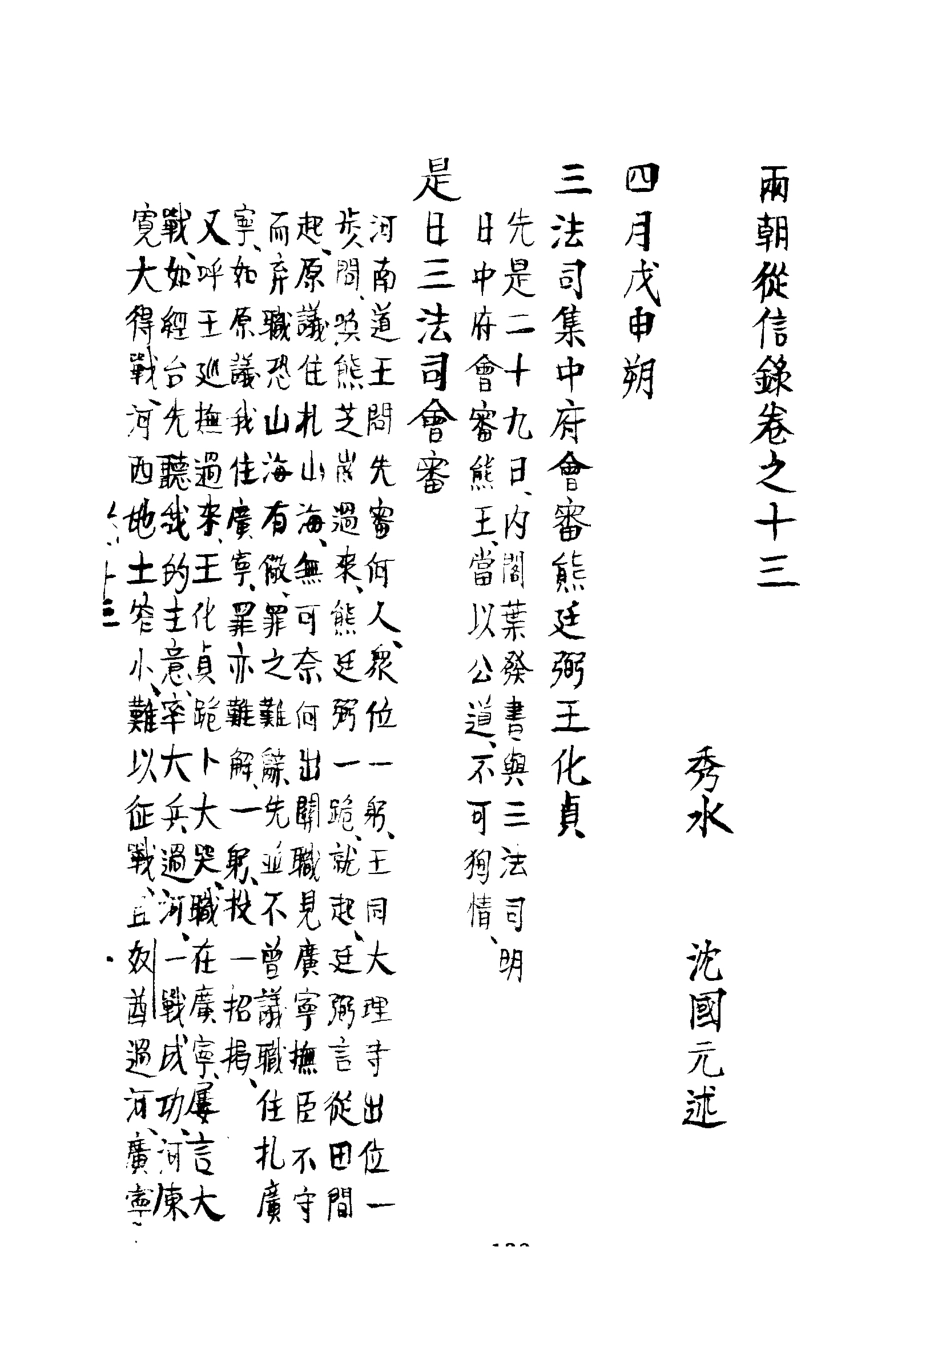 兩朝從信錄卷之十三
秀水 沈國元述
四月戊申朔
三法司集中府會審熊廷弼王化貞
先是二十九日、內閣葉發書與三法司明
日中府會審熊王、當以公道、不可狥情、
是日三法司會審
河南道王問先審何人、眾位一躬、王同大理寺出位一
步、問、喚熊芝岡過來、熊廷弼一跪、就起、廷弼言從田間
起、原議住札山海、無可奈何出關職見廣寧撫臣不守
而弃職恐山海有儆、罪之難辭、先並不曾議職住札廣
寧、如原議我住廣寧、罪亦難解、一躬、投一招揭、
又呼王廵撫過來、王化貞跪卜大哭、職在廣寧、屢言大
戰、如經台先聽我的主意、率大兵過河、一戰成功、河東
寬大得戰、河西地土窄小、難以征戰、且奴酋過河、廣寧
十三